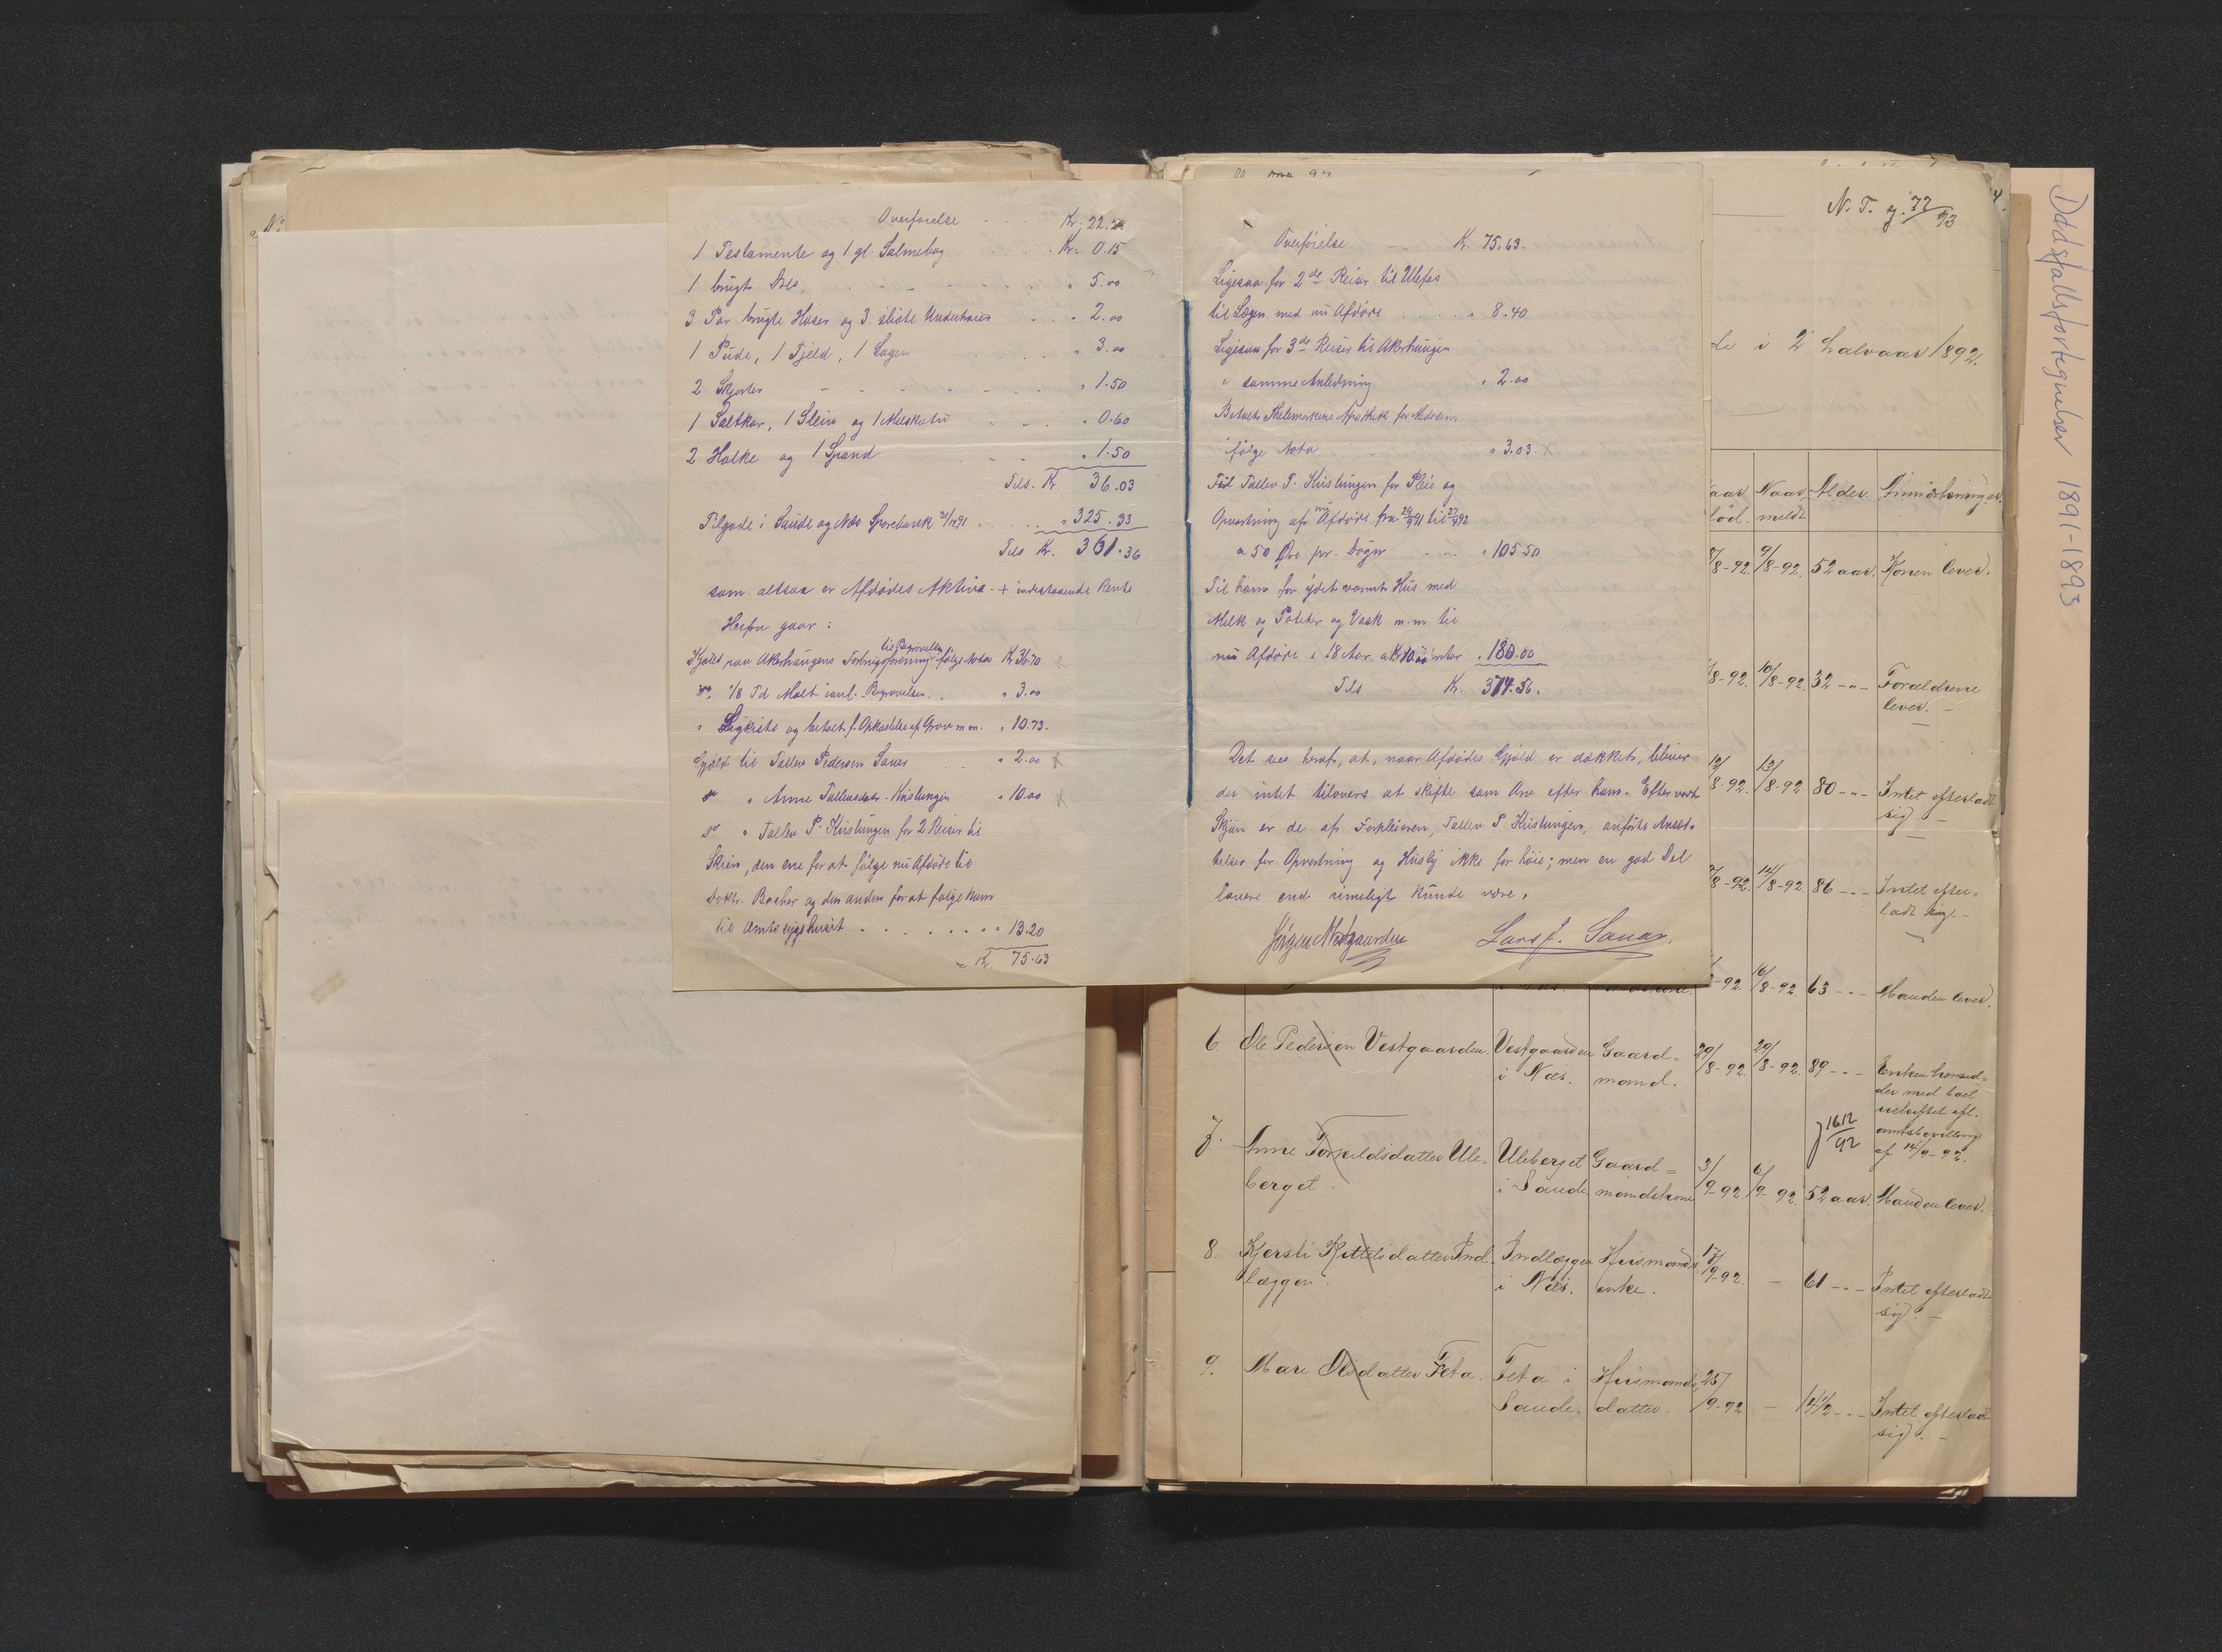 Overførelse . . . Kr. 22.28
1 Testamente og 1 gl. Salmebog . . Kr. 0.15
1 brugt Bls. . . . . . " 5.00
3 Par brugte Hoser og 3 slidte Underhoser . . " 2.00
1 Pude, 1 Fjeld, 1 Lagen . . . " 3.00
2 Skjorter - - - - - " 1.50
1 Saltkar, 1 Sleiv og 1 Melkebutte . . . " 0.60
2 Holke og 1 Spand . . " 1.50
Tils. Kr. 36.03
Tilgode i Saude og Næs Sparebank 31/12 91 . . . " 325.33
Tils Kr. 361.36
som altsaa er Afdødes Aktiva - + indestaaende Rente
Herfra gaar :
til Begravelsen
Gjæld paa Akerhaugens Forbrugsforening følge Nota Kr 36.70
do. 1/8 Td Malt ianl. Begravelsen . . " 3.00
" Ligkiste og betalt f. Opkastelse af Grav m m. " 10.73.
Gjæld til Tallev Pedersen Sauar . . " 2.00
do " Anne Tallevsdatr. Kvislungen " 10.00
do " Tallev P. Kvislungen for 2 Reiser til
Skien, den ene for at følge nu Afdøde til
Doktr. Bacher og den anden for at følge ham
til Amtssygehuset . . . . . . . . 13.20
Kr. 75.63
Overførelse - Kr. 75.63.
Ligesaa for 2de Reiser til Ulefos
til Lægen med nu Afdøde . . . . " 8.40
Ligesaa for 3de Reiser til Akerhaugen
i samme Anledning " 2.00
Betalt Thelemarkens Apothek for Medicin
ifølge Nota - " 3.03.
Til Tallev P. Kvislungen for Pleie og
Opvartning af nu Afdøde fra 29/9 91 til 27/4 92
a 50 Øre pr. Døgn . . . " 105.50
Til ham for ydet varmt Hus med
Melk og Poteter og Vask m. m til
nu Afdøde i 18 Aar a Kr 10.00 " 180.00
Tils Kr. 374.56.
Det sees heraf, at, naar Afdødes Gjæld er dækket, bliver
der intet tilovers at skifte som Arv efter ham. Efter vort
Skjøn er de af Forpleieren, Tallev P. Kvislungen, anførte Ansæt-
telser for Opvartning og Husly ikke for høie; men en god Del
lavere end rimeligt kunde være.
Jørgen Nestgaarden Lars J. Sauar.
N. T. ej. 72/93
de i 2' halvaar 1892.
Naar Alder. Anmærkninger.
meldt
8-92. 9/8-92. 52 aar. Konen lever.
8-92. 10/8-92. 32 - " - Forældrene
lever. -
12/8-92. 13/8-92 80 - " - Intet efterladt
sig. -
8-92. 14/8-92 86 - " - Intet efter=
ladt sig. -
-92. 16/8-92. 63 - " - Manden lever.
6 Ole Pedersen Vestgaarden. Vestgaarden Gaard= 29/8-92. 29/8-92. 89 - " - Enken hensid=
i Næs. mand. der med boet
uskiftet efl.
amtsbevilling
af 14/9-92.
J 1612/92
7. Anne Torkildsdatter Ule- Uleberget Gaard= 3/9-92. 6/9-92. 52 aar. Manden lever.
berget. i Saude. mandskone
8. Kjersti Kittilsdatter Ind- Indlæggen Husmands 17/9-92. - 61 - " - Intet efterladt
læggen. i Næs. enke. sig. -
9. Mari Olsdatter Feta. Feta i Husmands 25/9-92 - 14 1/2 - " - Intet efterladt
Saude. datter. sig. -
Dødsfallsfortegnelser 1891-1893